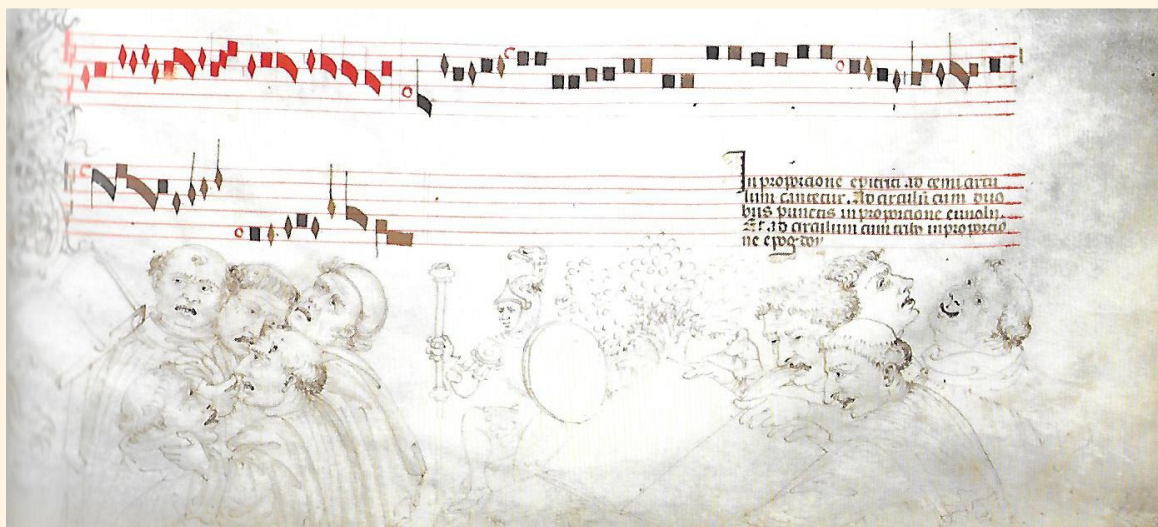 In proporcione epitriti ad cemi circu
lum cantetur. Ad circulū cum duo
bus punctis in proporcione emiolii.
Et ad circulum cum in proporcio
ne epogdoy